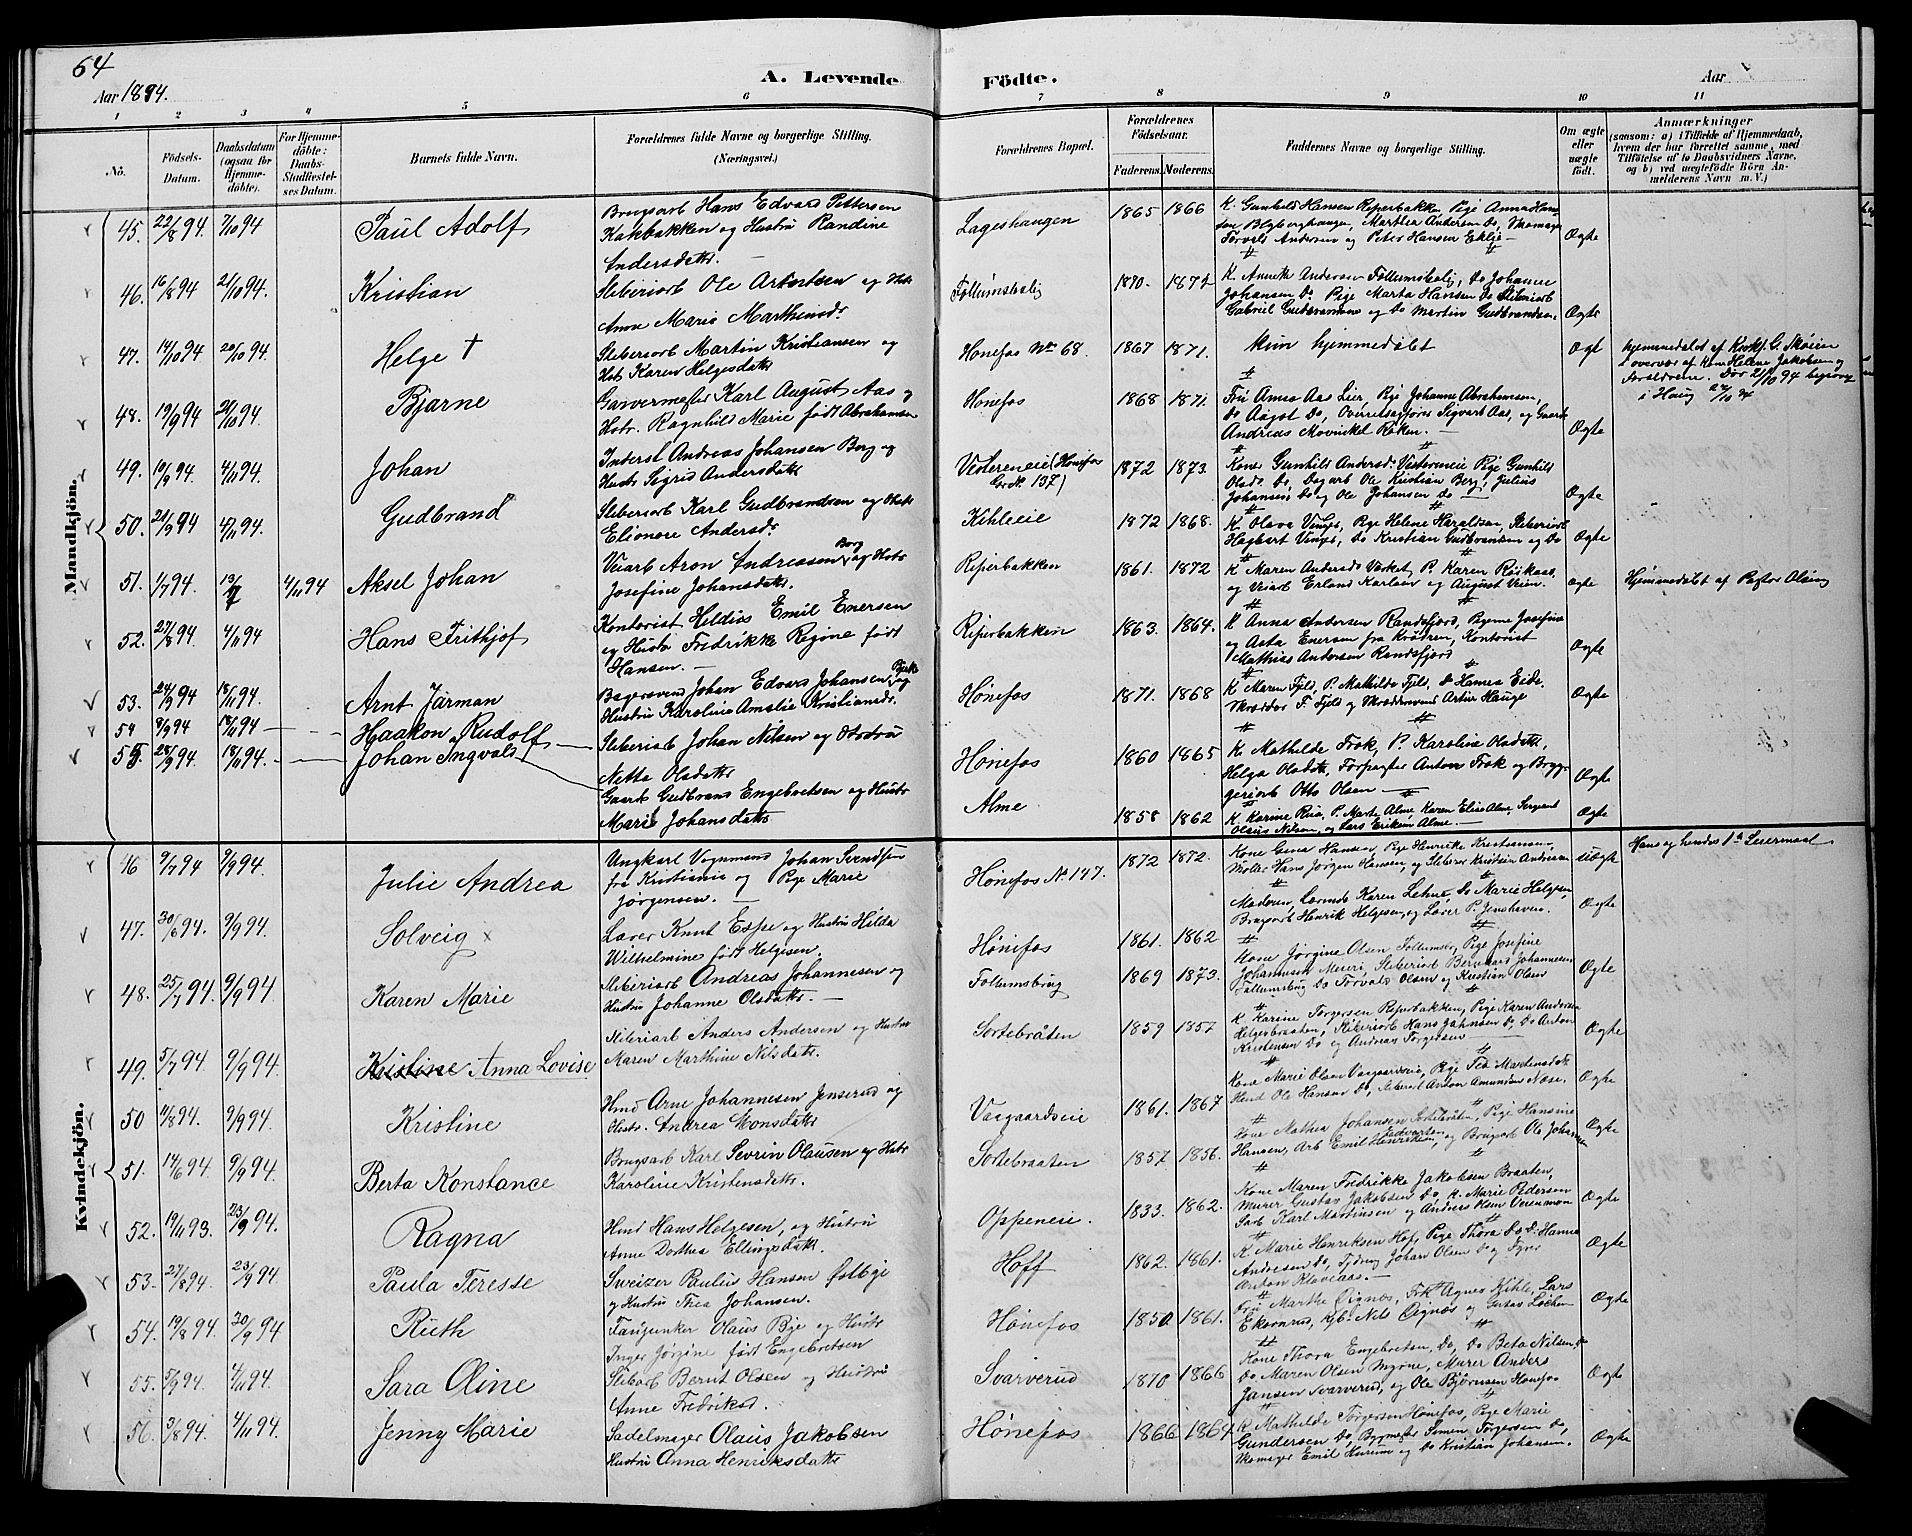 64
A. Levende Födte.
Aar 1894.
Aar
1 2 3 4 5 6 7 8 9 10 11
No.
Födsels-Datum.
Daabsdatum (ogsaa for Hjemmedöbte).
For Hjemmedöbte: Daabs-Stadfæstelses Datum.
Barnets fulde Navn.
Forældrenes fulde Navne og borgerlige Stilling. (Næringsvei.)
Forældrenes Bopæl.
Forældrenes Födselsaar.
Faderens. Moderens.
Faddernes Navne og borgerlige Stilling.
Om ægte eller uægte födt.
Anmærkninger
(saasom: a) i Tilfælde af Hjemmedaab, hvem der har forrettet samme, med Tilföielse af to Daabsvidners Navne, og b) ved uægtefödte Börn Anmelderens Navn m. V.)
Mandkjön.
45. 22/8 94. 7/10 94 Paul Adolf Brugsarb Hans Edvard Pettersen
Kakbakken og Hustru Randine
Andersdatter.
Lageshaugen 1865 1866 K. Gunhild Hansen Riperbakken Pige Anna
Marthea Andersen Do, Skomager
Torvald Andersen og Peter Hansen Eklie
Ægte
46. 16/8 94 21/10 94. Kristian Sliberiarb Ole Arntsen og Hustr
Anne Marie Marthinusd.
Follumsbolig 1870. 1872 K. Annette Andersen Follumsbolig, Do Johanne
Johansen Do. Pige Marta Hansen Do Sliberiarb
Gabriel Gudbrandsen og Do Martin Gudbrandsen.
Ægte
47. 14/10 94 20/10 94. Helge † Sliberiarb Martin Kristiansen og
Hustr Karen Helgesdatter
Honefos No 68. 1867 1871. kun hjemmedöbt Ægt
hjemmedöbt af Kirkes. G. Sköien
i overvær af Kone Helene Jakobsen og
Forældrene. Dör 21/10 94 begravet
i Houg
48. 19/9 94 28/10 94. Bjarne Garvermester Karl August Aas og
Hustr. Ragnhild Marie født Abrahamsen
Honefos 1868 1871. Fru Anna Aas Lier, Pige Johanne Abrahamsen,
Do Aagot Do, Overretssagförer Sigvart Aas, og Gaardb
Andreas Movinckel Röken.
Ægte
49. 10/9 94. 4/11 94. Johan Inderst Andreas Johansen Berg og
Hustr Sigrid Andersdatter
Vestereneie (Honefos
Gade 137) 1872 1873. Kone Gunhild Andersd. Vestereneie Pige Gunhild
Olsds Do, Dagarb Ole Kristian Berg, Julius
Johansen Do og Ole Johansen Do
Ægte
50. 20/9 94 4/11 94. Gudbrand Sliberiarb Karl Gudbrandsen og Hustr
Elionore Andersd.
Kihleeie 1872 1868. K. Olava Vingo, Pige Helene Haraldsen, Sliberiarb
Hagbart Vingo, Do Kristian Gudbrandsen og Do
Ægte
51. 1/7 94. 13/7 4/11 94 Aksel Johan Veiarb Aron Andreassen Berg og Hustr
Josefine Johansdatter.
Riperbakken 1861. 1872 K Maren Andersd. Værket, P. Karen Röskaas,
og Veiarb Erland Karlsen og August Veien.
Ægte Hjemmedöbt af Pastor Olsing
52. 27/8 94. 4/11 94 Hans Frithjof Kontorist Heldius Emil Enersen
og Hustr Fredrikke Regine født
Hansen.
Riperbakken 1863. 1864. K Anna Andersen Randsfjord, Pigerne Josefine
og Asta Enersen fra Krödren, Kontorist
Mathias Andersen Randsfjord
Ægte
53. 24/9 94 18/11 94. Arnt Jarman Bagersvend Johan Edvard Johansen og
Hustru Karoline Amalie Kristiansd.
Hönefos 1871. 1868 K Maren Fjeld, P. Mathilde Fjeld, Do Hanna Eide.
Skrædder F. Fjeld og Skræddersvend Artur Hauge
Ægte
54 8/9 94 18/11 94 Haakon Rudolf Sliberiarb Johan Nilsen og Hustru
Netta Olsdatter
Hönefos 1860 1865 K. Mathilde Fosk, P. Karoline Olsdatt,
Helga Olsdatt, Forpagter Anton Fosk og Brygg-
geriarb Otto Olsen
Ægte
55. 28/9 94. 18/11 94. Johan Ingvald Gaardb Gudbrand Engebretsen og Hustr
Marie Johansdatter
Alme 1858 1862 K. Karine Rua, P. Marte Alme, Karen Elise Alme, Sergeant
Olaus Nilsen, og Lars Eriksen Alme.
Ægte
Kvindekjön.
46 9/7 94 9/9 94. Julie Andrea Ungkarl Vognmand Johan Svendsen
fra Kristiania og Pige Marie
Jörgensen.
Hönefos No 147. 1872 1872. Kone Gina Hansen, Pige Henrikke Kristiansen,
Maler Hans Jörgen Hansen, og Sliberer Kristian Andersen
Uægte Hans og hendes 1ste Leiermaal
47. 30/6 94. 9/9 94. Solveig x Lærer Knut Espe og Hustru Hilda
Wilhelmine født Helgesen.
Hönefos 1861. 1862 Karen Lehne, Do Marie Helgesen,
Brugsarb Henrik Helgesen, og Lærer P. Jenshaven.
Ægte
48. 25/7 94. 9/9 94 Karen Marie Sliberiarb Andreas Johannesen og
Hustru Johanne Olsdatter.
Follumsbrug 1869 1873. Kone Jörgine Olsen Follumsb, Pige Josefine
Johannesen Meieri, Sliberiarb Bernhard Johannesen
Follumsbrug Do Torvald Olsen og Kristian Olsen
Ægte
49. 5/7 94 9/9 94 Kristine Anna Lovise Sliberiarb Anders Andersen og Hustru
Maren Marthine Nilsdatter.
Sortebråten 1859 1857 K. Karine Torgersen Riperbakken, Pige Karen Andersen
Helgesbraaten, Sliberiarb Hans Jahnsen Do, Do Anton
Kristensen Do og Andreas Torgersen
Ægte
50 11/8 94. 9/9 94. Kristine Hmd Arne Johannesen Jenserud og
Hustr. Andrea Monsdatter
Vaagaardseie 1861. 1867 Kone Marie Olsen Vaagaardseie, Pige Tea Martensdatt
Hmd Ole Hansen Do, Anton Amundsen Næs.
Ægte
51. 14/6 94. 9/9 94. Berta Konstance Brugsarb Karl Sevrin Olausen og Hustr
Karoline Kristensdatter.
Sortebraaten 1857 1856. Kone Mathea Johansen Sortebråten, Pige Hansine
Hansen, Arb Emil Edvartsen Henriksen, og Brugsarb Ole Johansen
Ægte
52. 19/11 93. 23/9 94. Ragna Hmd Hans Helgesen, og Hustru
Anne Dorthea Ellingsdatter.
Oppeneie. 1833. 1862. Kone Maren Fredrikke Jakobsen Braaten,
Murer Gustav Jakobsen Do, K. Marie Pedersen
Karl Martinsen og Anders Olsen Veienmoen
Ægte
53. 27/8 94. 23/9 94. Paula Teresse Sweizer Paulus Hansen
og Hustru Thea Johansen.
Hoff 1862. 1861. K. Marie Henriksen Hof, Pige Thora Do, Do Hanna
Andresen Do, Johan Olsen Do og
Anton Klaveaas.
Ægte
54. 19/8 94. 30/9 94 Ruth Olaus Bye og Hustr
Inger Jörgine født Engebretsen
Hönefos 1850. 1861. Fru Marthe Öignes, Frk Agnes Kihle, Lars
Ekornrud, Kjb. Nils Öignes og Gustav Löchen
Ægte
55. 5/9 94. 4/11 94. Sara Oline Slibarb Bernt Olsen og Hustru
Anne Fredriksd.
Svarverud 1870 1866 Kone Thora Engebretsen, Do, Do Beta Nilsen, Do
Do Maren Olsen Myrne, Murer Anders
Jansen Svarverud, og Ole Björnsen Hönefos
Ægte
56. 3/8 94. 4/11 94. Jenny Marie Sadelmager Olaus Jakobsen
Hustru Anna Henriksdatter
Hönefos 1866 1864 K. Mathilde Torgersen Hönefos, Pige Marie
Gundersen Do, Bygmester Simen Torgersen Do,
Skomager Emil Hurum og Do Kristian Johansen.
Ægte